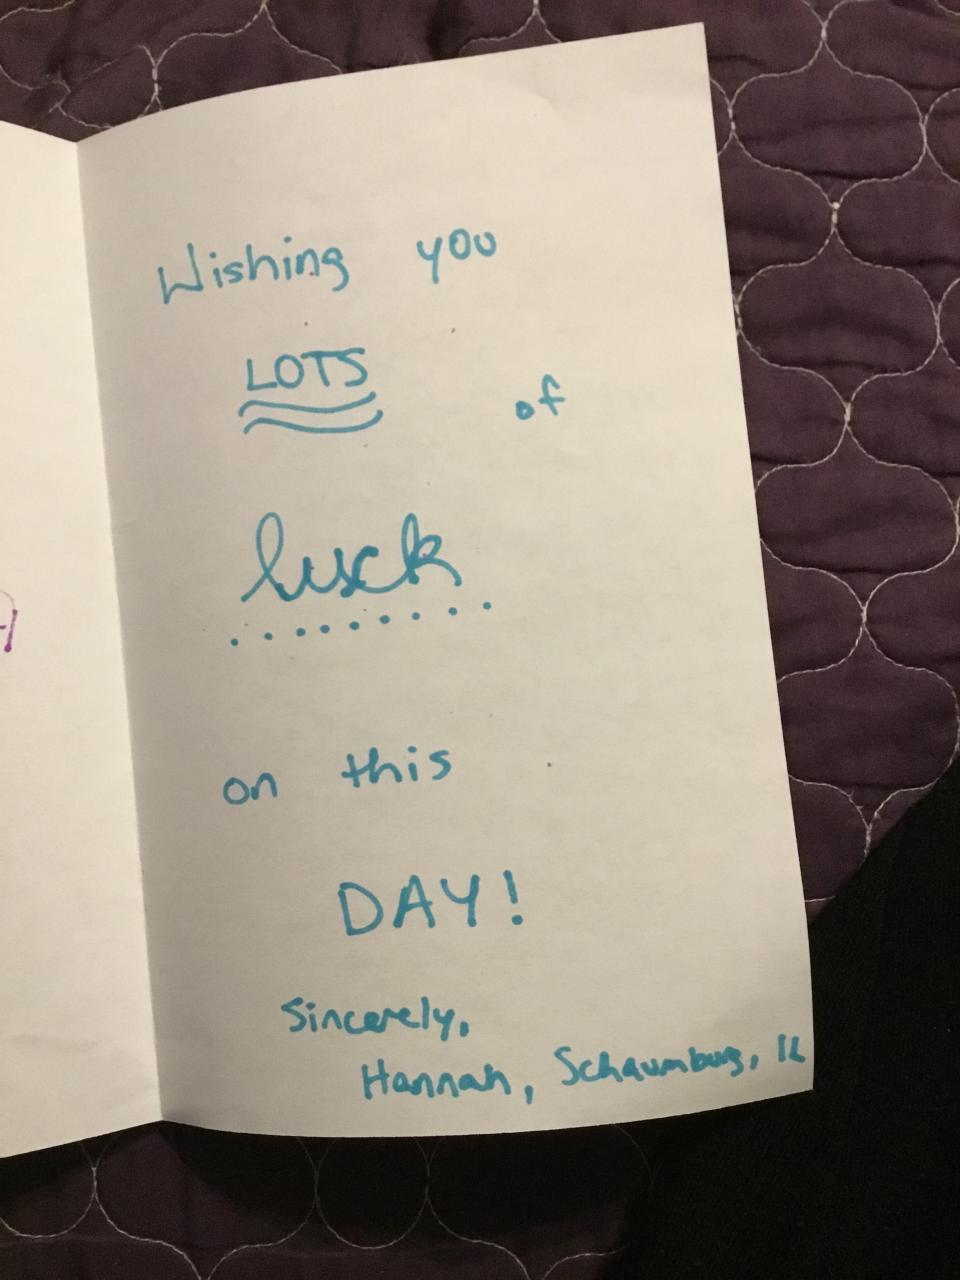 Wishing you
LOTS of
luck
on this
DAY!
Sincerely,
Hannah, Schaumburg, IL